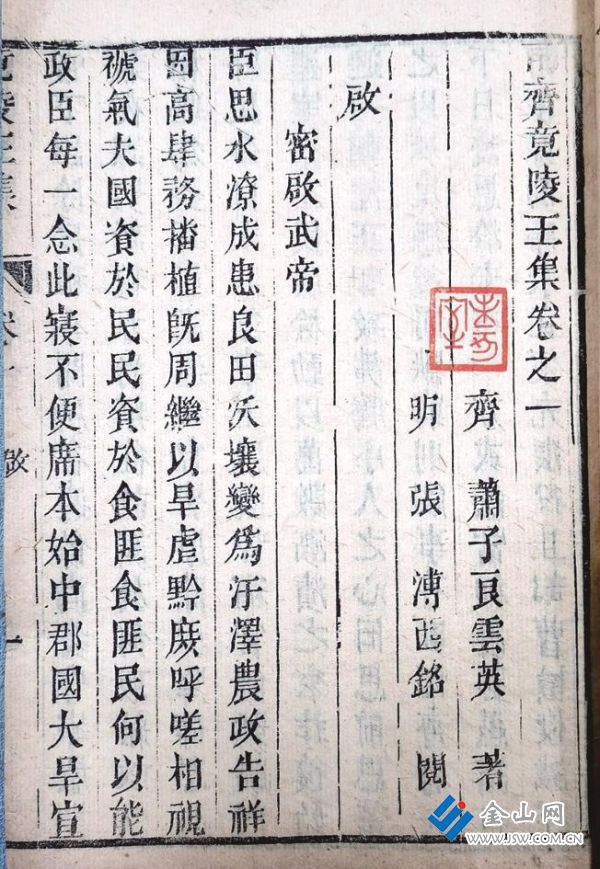 南齊竟陵王集卷之一
齊 蕭子良雲英 著
明 張溥西銘 閱
啟
密啟武帝
臣思水潦成患良田沃壤變爲汙澤農政告祥
因高肆務播植旣周繼以旱虐黔庻呼嗟相視
褫氣夫國資於民民資於食匪食匪民何以能
政臣每一念此寢不便席本始中郡國大旱宣
竟陵王集
卷一
啟
一
金山网
WWW.JSW.COM.CN